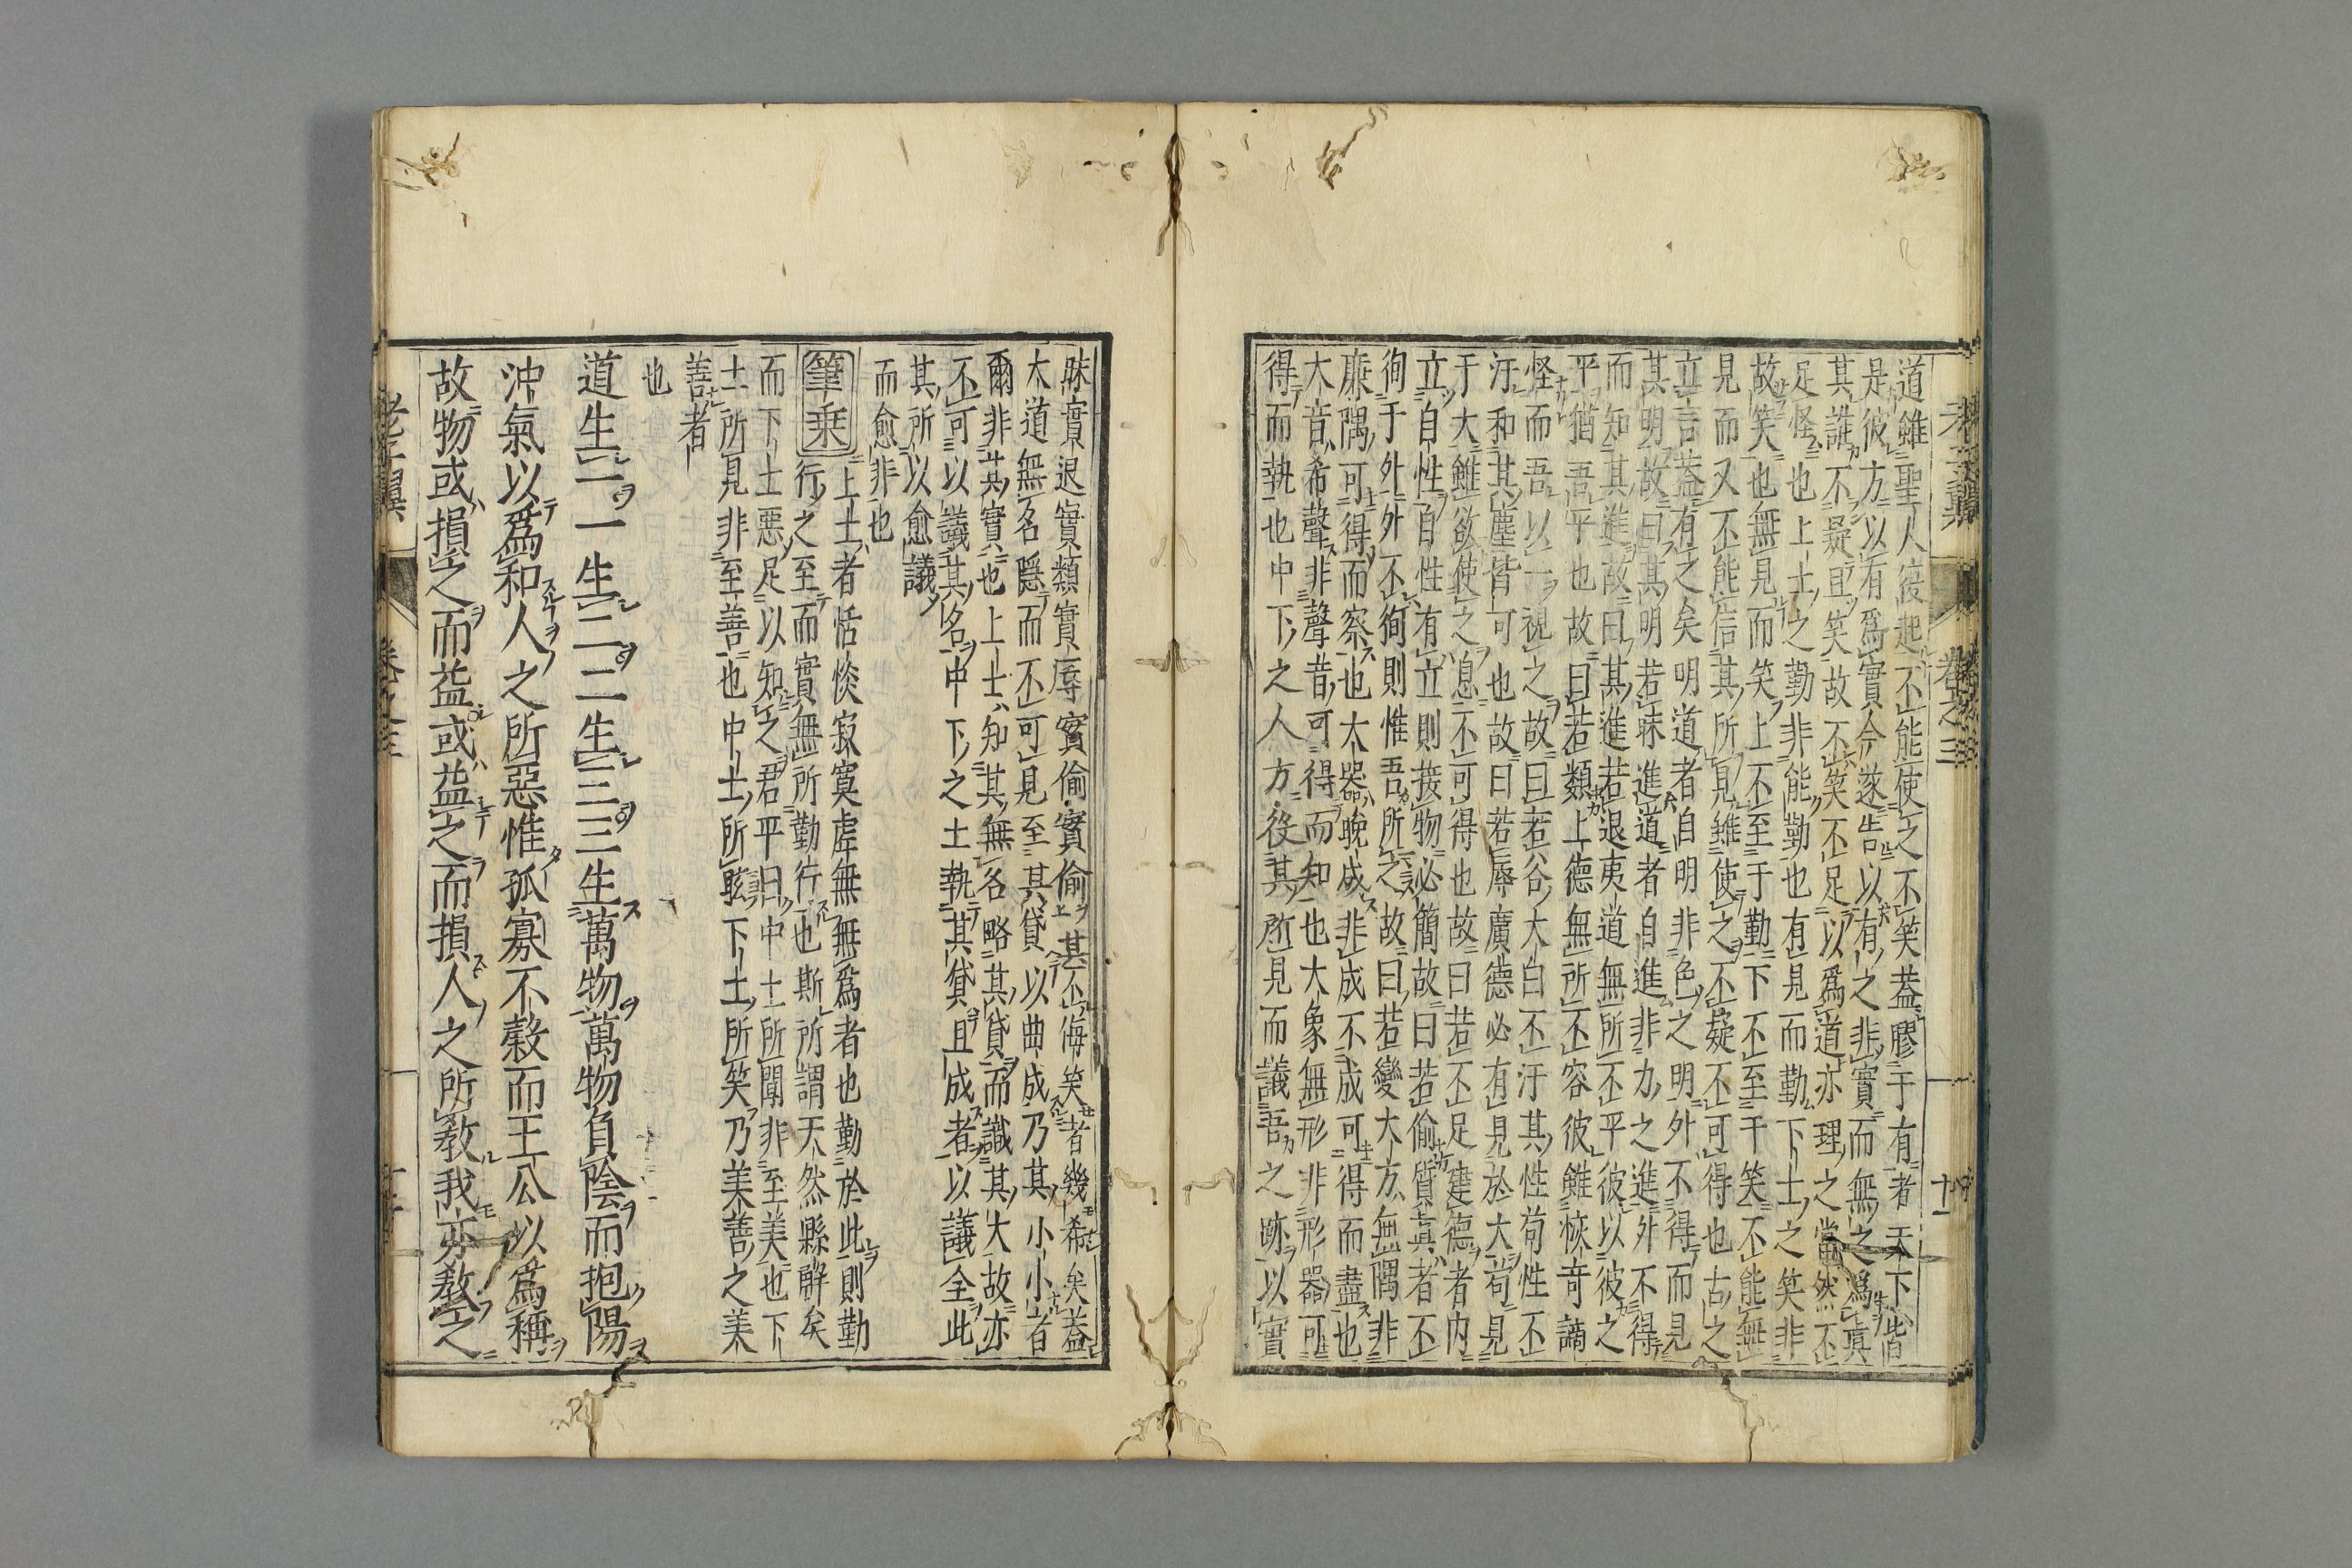 道雖聖人復起不能使之不笑蓋膠于有者天下皆
是彼方以有爲實今遂告以有之非實而無之爲眞
其誰不疑且笑故不笑不足以爲道亦理之當然不
足怪也上士之勤非能勤也有見而勤下士之笑非
故笑也無見而笑上不至于勤下不至于笑不能無
見而又不能信其所見雖使之不疑不可得也古之
立言蓋有之矣明道者自明非色之明外不得而見
其明故曰其明若昧進道者自進非力之進外不得
而知其進故曰其進若退夷道無所不平彼以彼之
平猶吾平也故曰若類上德無所不容彼雖恢奇譎
怪而吾以一視之故曰若谷大白不汙其性苟性不
汙和其塵皆可也故曰若辱廣德必有見於大苟見
于大雖欲使之息不可得也故曰若不足建德者内
立自性自性有立則接物必簡故曰若偷質眞者不
徇于外外不徇則惟吾所之故曰若變大方無隅非
廉隅可得而察也大器晚成非成不成可得而盡也
大音希聲非聲音可得而知也大象無形非形器可
得而執也中下之人方役其所見而議吾之跡以實
昧實退實類實辱實偷實偷甚不侮笑者幾希矣蓋
大道無名隱而不可見至其貸以曲成乃其小小者
爾非其實也上士知其無名略其貸而識其大故亦
不可以議其名中下之士執其貸且成者以議全此
其所以愈議
而愈非也
筆乗 上士者恬惔寂寞虛無無爲者也勤於此則勤
行之至而實無所勤行也斯所謂天然縣解矣
而下士惡足以知之君平曰中士所聞非至美也下
士所見非至善也中士所眩下士所笑乃美善之美
善者
也
道生一一生二二生三三生萬物萬物負陰而抱陽
沖氣以爲和人之所惡惟孤寡不穀而王公以爲稱
故物或損之而益或益之而損人之所教我亦教之
老子翼 卷之三